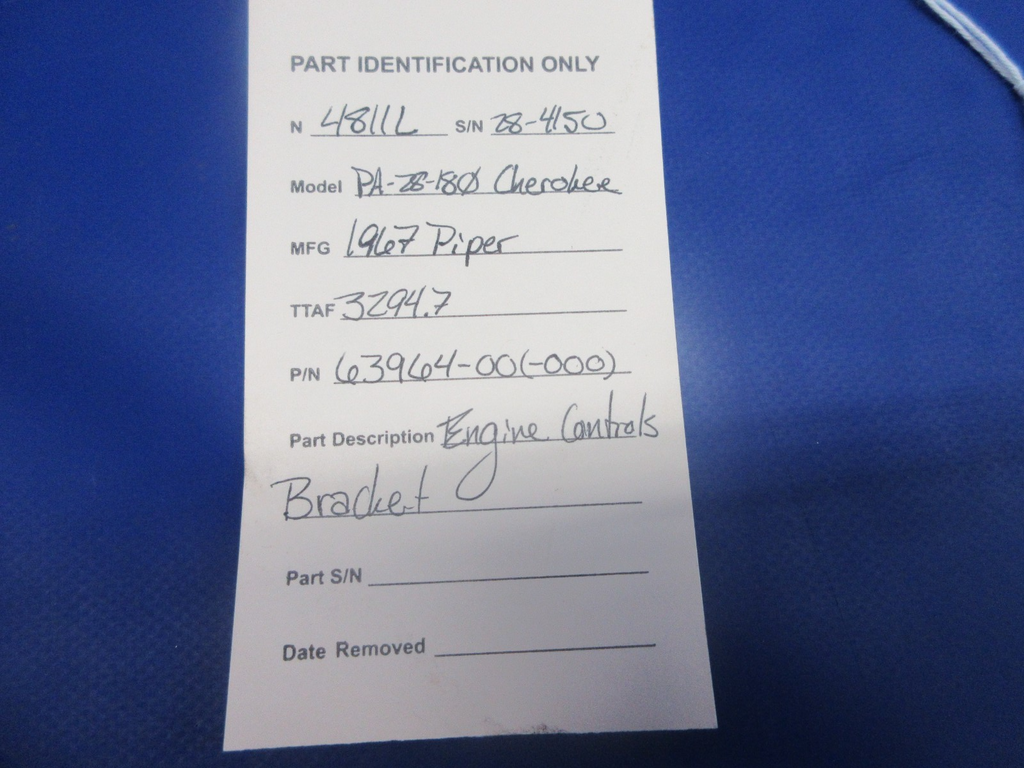 PART IDENTIFICATION ONLY
N 4811L S/N 28-4150
Model PA-28-180 Cherokee
MFG 1967 Piper
TTAF 3294.7
P/N 63964-00(-000)
Part Description Engine Controls
Bracket
Part S/N
Date Removed